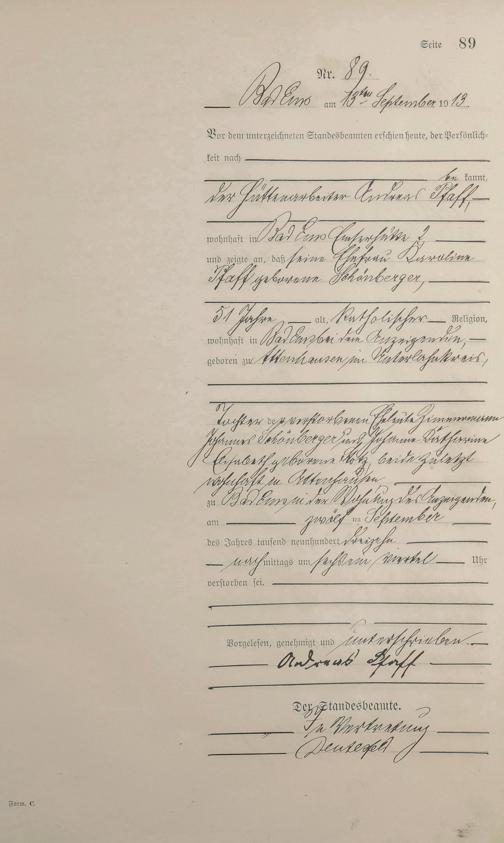 Seite 89
Nr. 89.
Bad Ems am 13ten September 1913
Vor dem unterzeichneten Standesbeamten erschien heute, der Persönlich-
keit nach
be kannt,
der Hüttenarbeiter Andreas Pfaff,
wohnhaft in Bad Ems Emserhütte 2,
und zeigte an, daß seine Ehefrau Karoline
Pfaff geborene Schönberger,
51 Jahre alt, katholischer Religion,
wohnhaft in Bad Ems bei dem Anzeigenden,
geboren zu Attenhausen im Unterlahnkreis,
Tochter der verstorbenen Eheleute Zimmermann
Johannes Schönberger und Johanne Katharine
Elisabeth geborene beide zuletzt
wohnhaft in Attenhausen
zu Bad Ems in der Wohnung des Anzeigenden,
am zwölf ten September
des Jahres tausend neunhundert dreizehn
nach mittags um sechs ein viertel Uhr
verstorben sei.
Vorgelesen, genehmigt und unterschrieben.
Andreas Pfaff
Der Standesbeamte.
In Vertretung
Form. C.